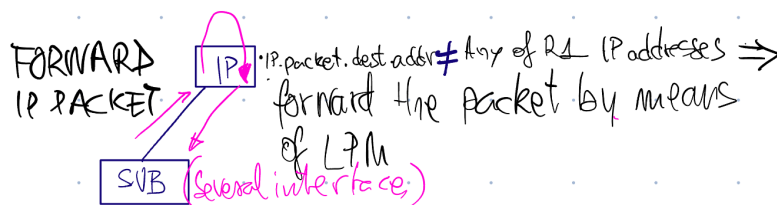 FORWARD
IP PACKET
IP
IP.packet.dest.addr ≠ Any of R1 IP addresses ⇒
forward the packet by means
of LPM
SUB (several interfaces)